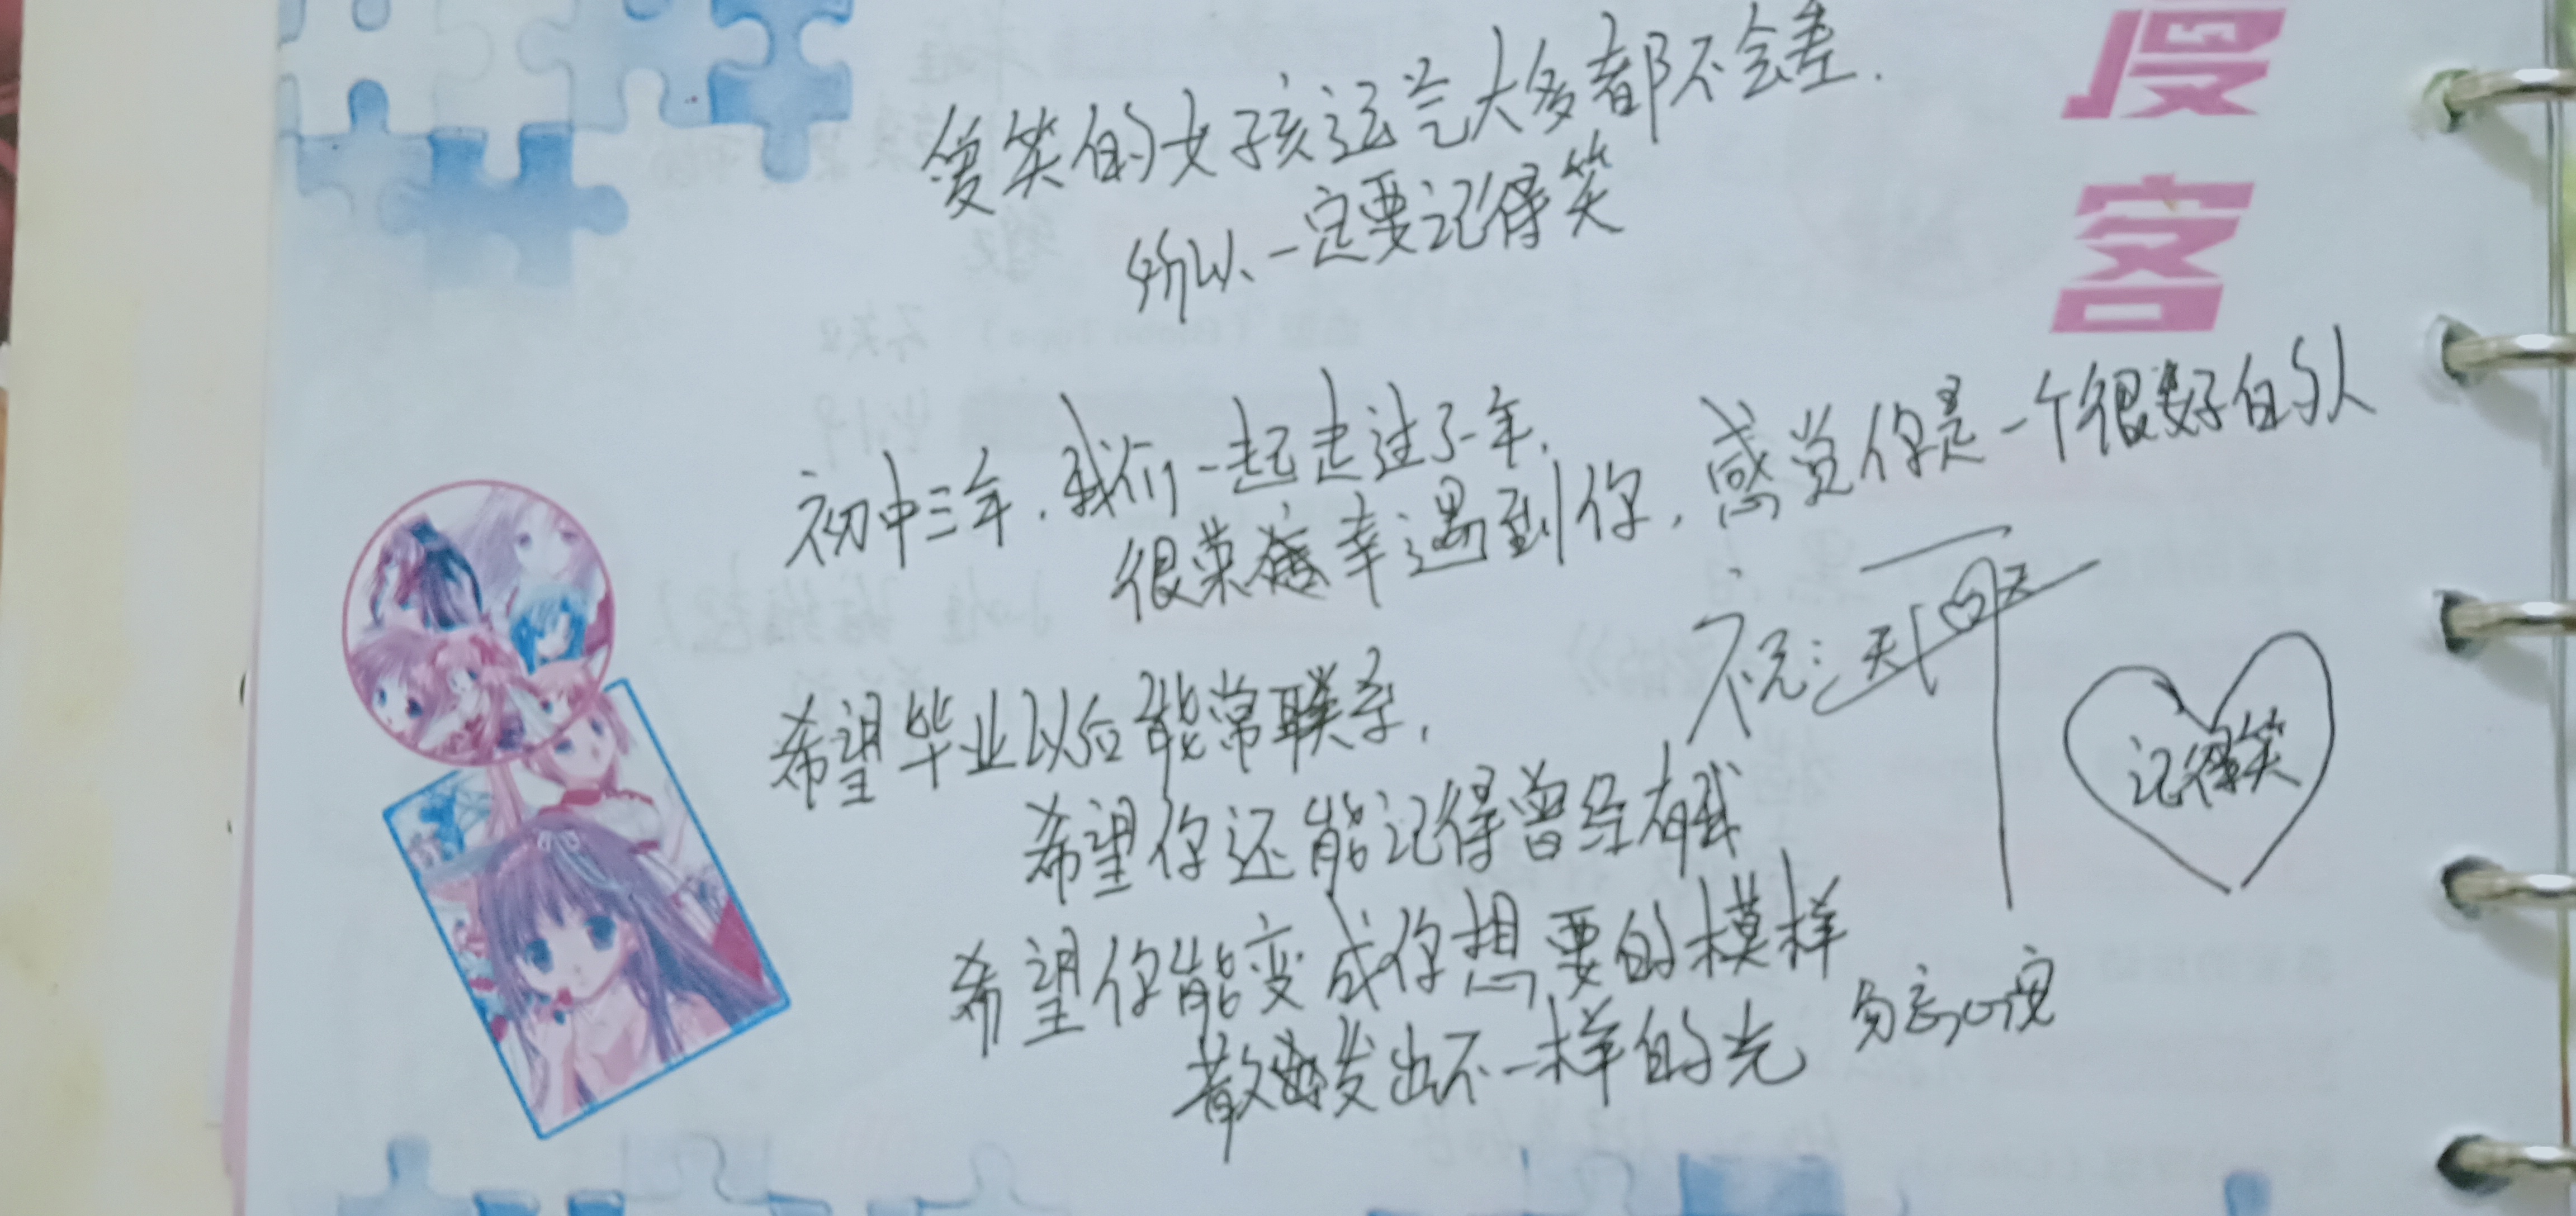 漫客
爱笑的女孩运气大多都不会差.
所以一定要记得笑
初中三年.我们一起走过了一年.
很荣幸遇到你,感觉你是一个很好的人
祝:天天
希望毕业以后能常联系,
记得笑
希望你还能记得曾经有我
希望你能变成你想要的模样
散发出不一样的光
勿忘心安